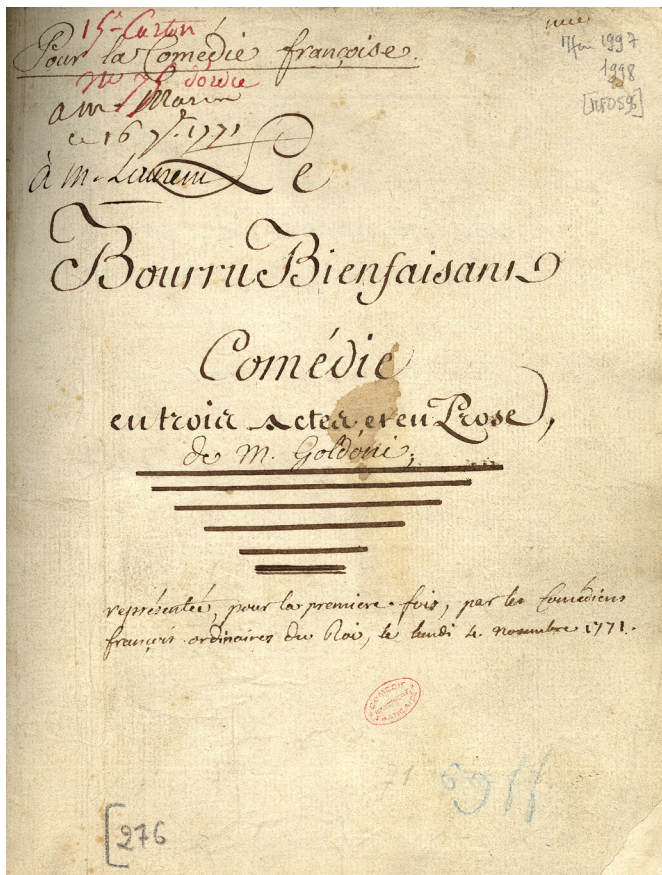 15e Carton
Pour la Comédie françoise.
nº 75
a m. Marin
ce 16 7bre 1771
à m. Laurent
Le
Bourru Bienfaisant
Comédie
en trois actes, et en Prose,
de M. Goldoni,
représentée, pour la premiere fois, par les Comédiens
françois ordinaires du Roi, le lundi 4. novembre 1771.
COMÉDIE
FRANÇAISE
71
276
1997
1998